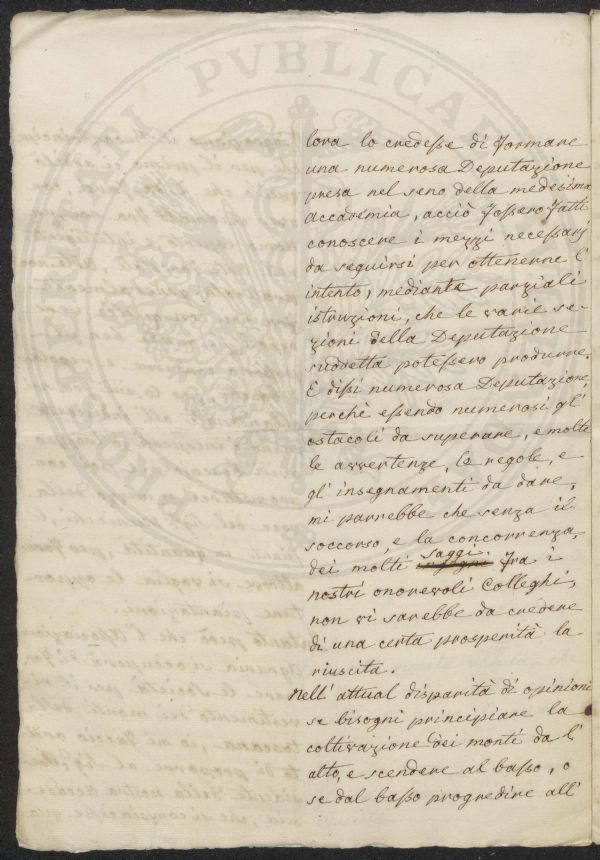 lora lo credesse di formare
una numerosa Deputazione
presa nel seno della medesima
Accademia, acciò fossero fatti
conoscere i mezzi necessarj
da seguirsi per ottenerne l'
intento, mediante parziali
istruzioni, che le varie se-
zioni della Deputazione
suddetta potessero produrne.
E dissi numerosa Deputazione,
perchè essendo numerosi gl'
ostacoli da superare, e molte
le avvertenze, le regole, e
gl' insegnamenti da dare,
mi parrebbe che senza il
soccorso, e la concorrenza,
dei molti saggi fra i
nostri onorevoli Colleghi,
non vi sarebbe da credere
di una certa prosperità la
riuscita.
Nell' attual disparità di opinioni
se bisogni principiare la
coltivazione dei monti da l'
alto, e scendere al basso, o
se dal basso progredire all'